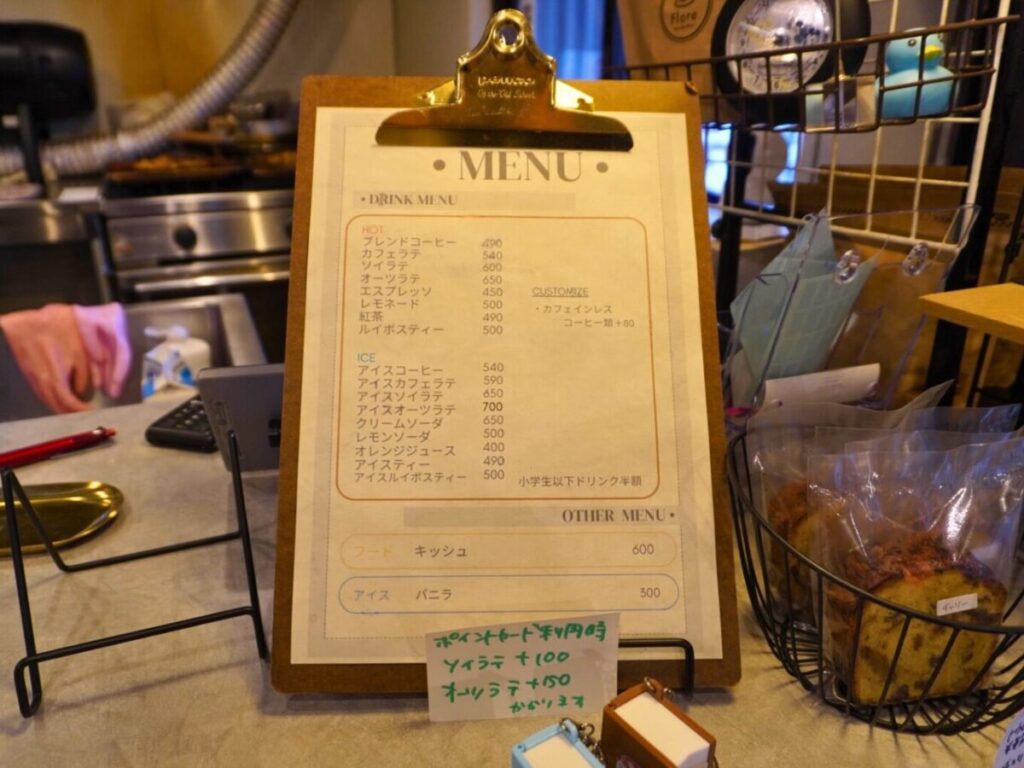 Flore
• MENU •
• DRINK MENU
HOT
ブレンドコーヒー 490
カフェラテ 540
ソイラテ 600
オーツラテ 650
エスプレッソ 450
レモネード 500
紅茶 490
ルイボスティー 500
CUSTOMIZE
・カフェインレス
コーヒー類+80
ICE
アイスコーヒー 540
アイスカフェラテ 590
アイスソイラテ 650
アイスオーツラテ 700
クリームソーダ 650
レモンソーダ 500
オレンジジュース 400
アイスティー 490
アイスルイボスティー 500
小学生以下ドリンク半額
OTHER MENU •
フード キッシュ 600
アイス バニラ 300
ソイラテ +100
オーツラテ +150